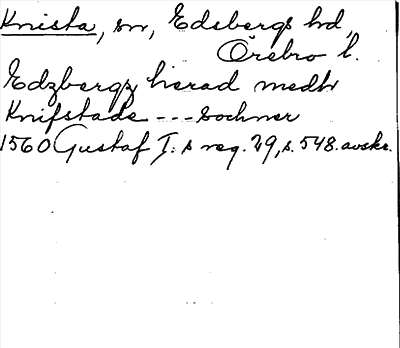 Knista, sn, Edsbergs hd,
Örebro l.
Edzbergz hierad medh
Knifstade --- Sochner
1560 Gustaf I:s reg. 29, s. 548. avskr.